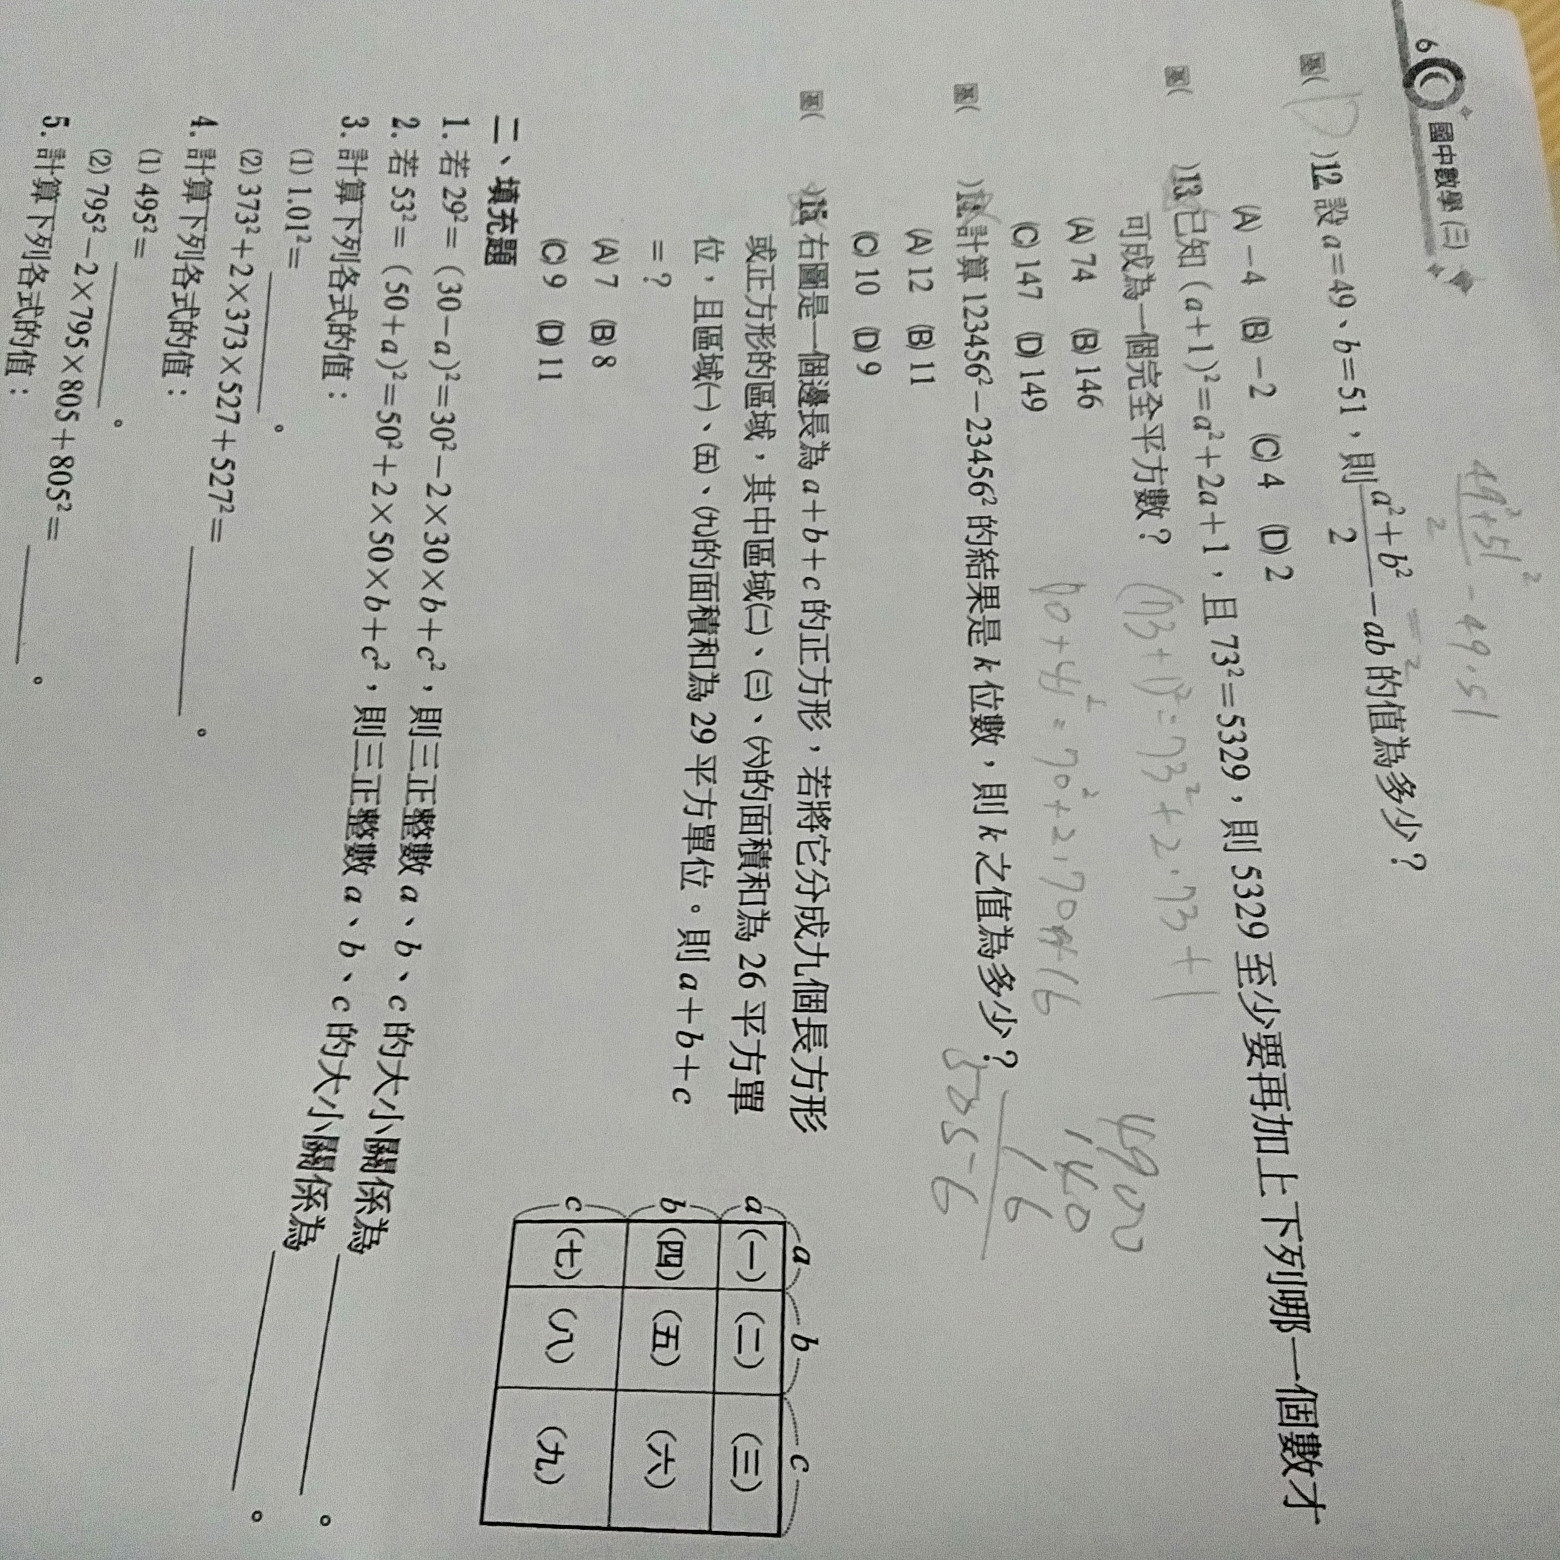 6 國中數學(三)
49²+51²/2 - 49·51
= 2
基( D )12 設 a=49、b=51,則 a²+b²/2 −ab 的值為多少?
(A) −4 (B) −2 (C) 4 (D) 2
基( )13 已知 (a+1)²=a²+2a+1,且 73²=5329,則 5329 至少要再加上下列哪一個數才
可成為一個完全平方數? (73+1)²=73²+2·73+1
(A) 74 (B) 146
(C) 147 (D) 149
4900
140
16
基( )14 計算 123456²−23456² 的結果是 k 位數,則 k 之值為多少?
(A) 12 (B) 11
(C) 10 (D) 9
基( )15 右圖是一個邊長為 a+b+c 的正方形,若將它分成九個長方形
或正方形的區域,其中區域(二)、(三)、(六)的面積和為 26 平方單
位,且區域(一)、(五)、(九)的面積和為 29 平方單位。則 a+b+c
=?
(A) 7 (B) 8
(C) 9 (D) 11
a b c
a (一) (二) (三)
b (四) (五) (六)
c (七) (八) (九)
二、填充題
1. 若 29²=(30−a)²=30²−2×30×b+c²,則三正整數 a、b、c 的大小關係為 。
2. 若 53²=(50+a)²=50²+2×50×b+c²,則三正整數 a、b、c 的大小關係為 。
3. 計算下列各式的值:
(1) 1.01²= 。
(2) 373²+2×373×527+527²= 。
4. 計算下列各式的值:
(1) 495²= 。
(2) 795²−2×795×805+805²= 。
5. 計算下列各式的值: